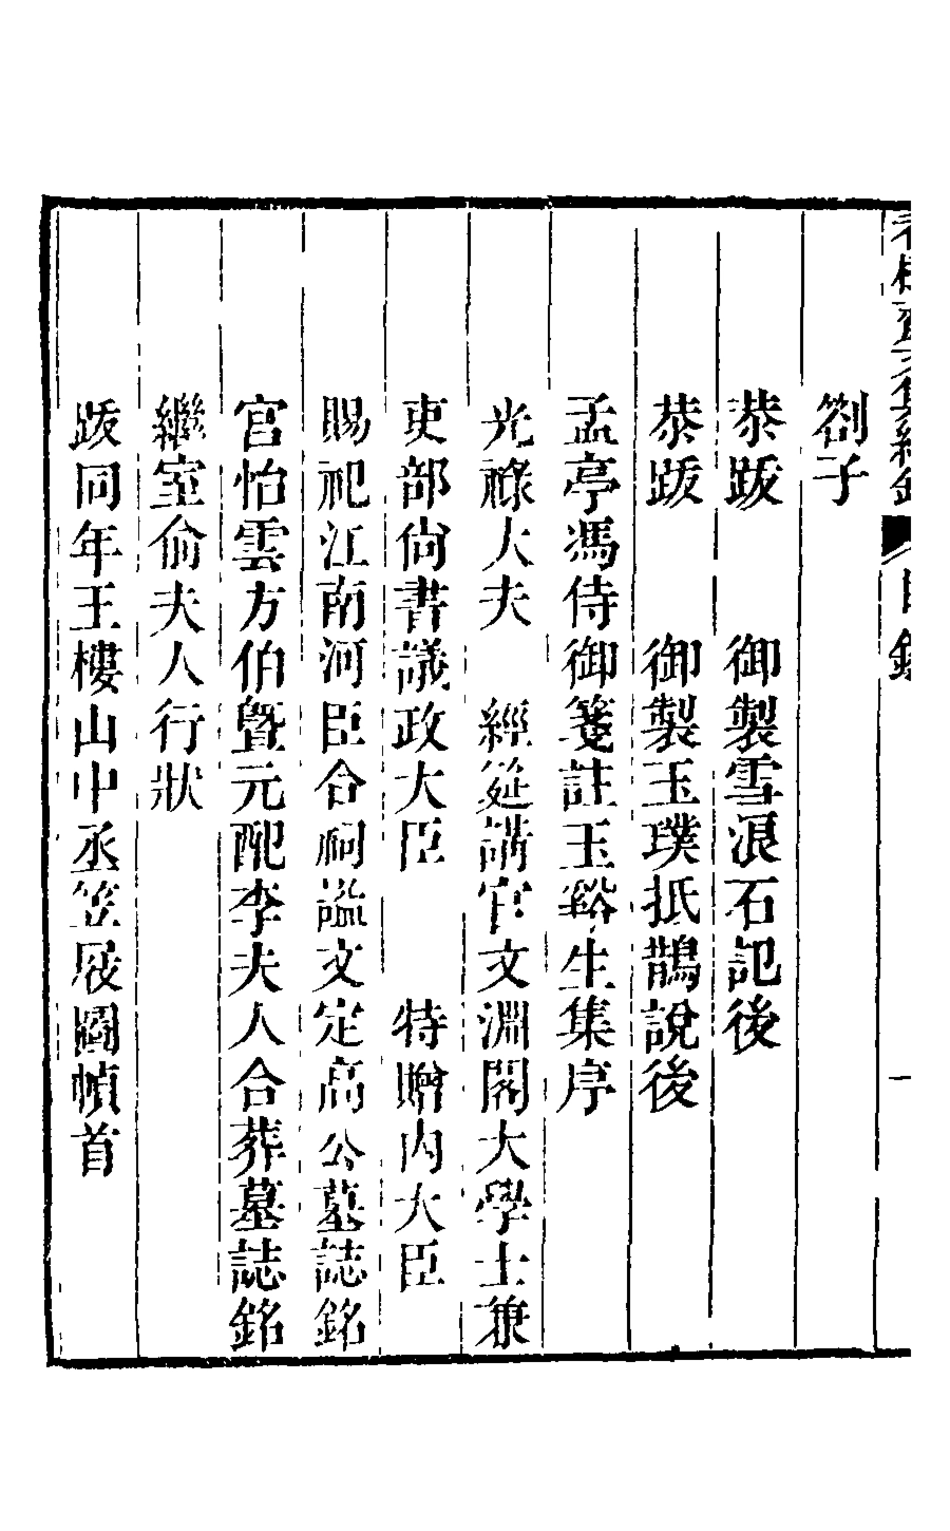 目錄
一
劄子
恭跋　御製雪浪石記後
恭跋　御製玉璞抵鵲說後
孟亭馮侍御箋註玉谿生集序
光祿大夫　經筵講官文淵閣大學士兼
吏部尚書議政大臣　特贈內大臣
賜祀江南河臣合祠謚文定高公墓誌銘
官怡雲方伯暨元配李夫人合葬墓誌銘
繼室俞夫人行狀
跋同年王樓山中丞笠屐圖幀首